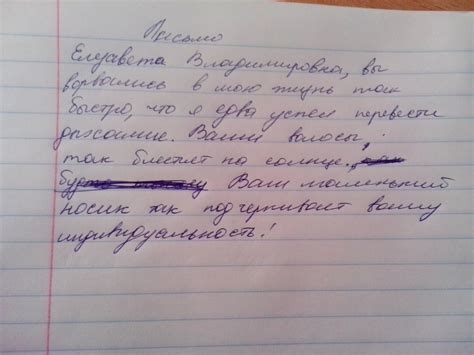 Письмо
Елезавета Владимировна, вы
ворвались в мою жизнь так
быстро, что я едва успел перевести
дыхание. Ваши волосы,
так блестят на солнце.
Ваш маленький
носик так подчеркивает вашу
индивидуальность!